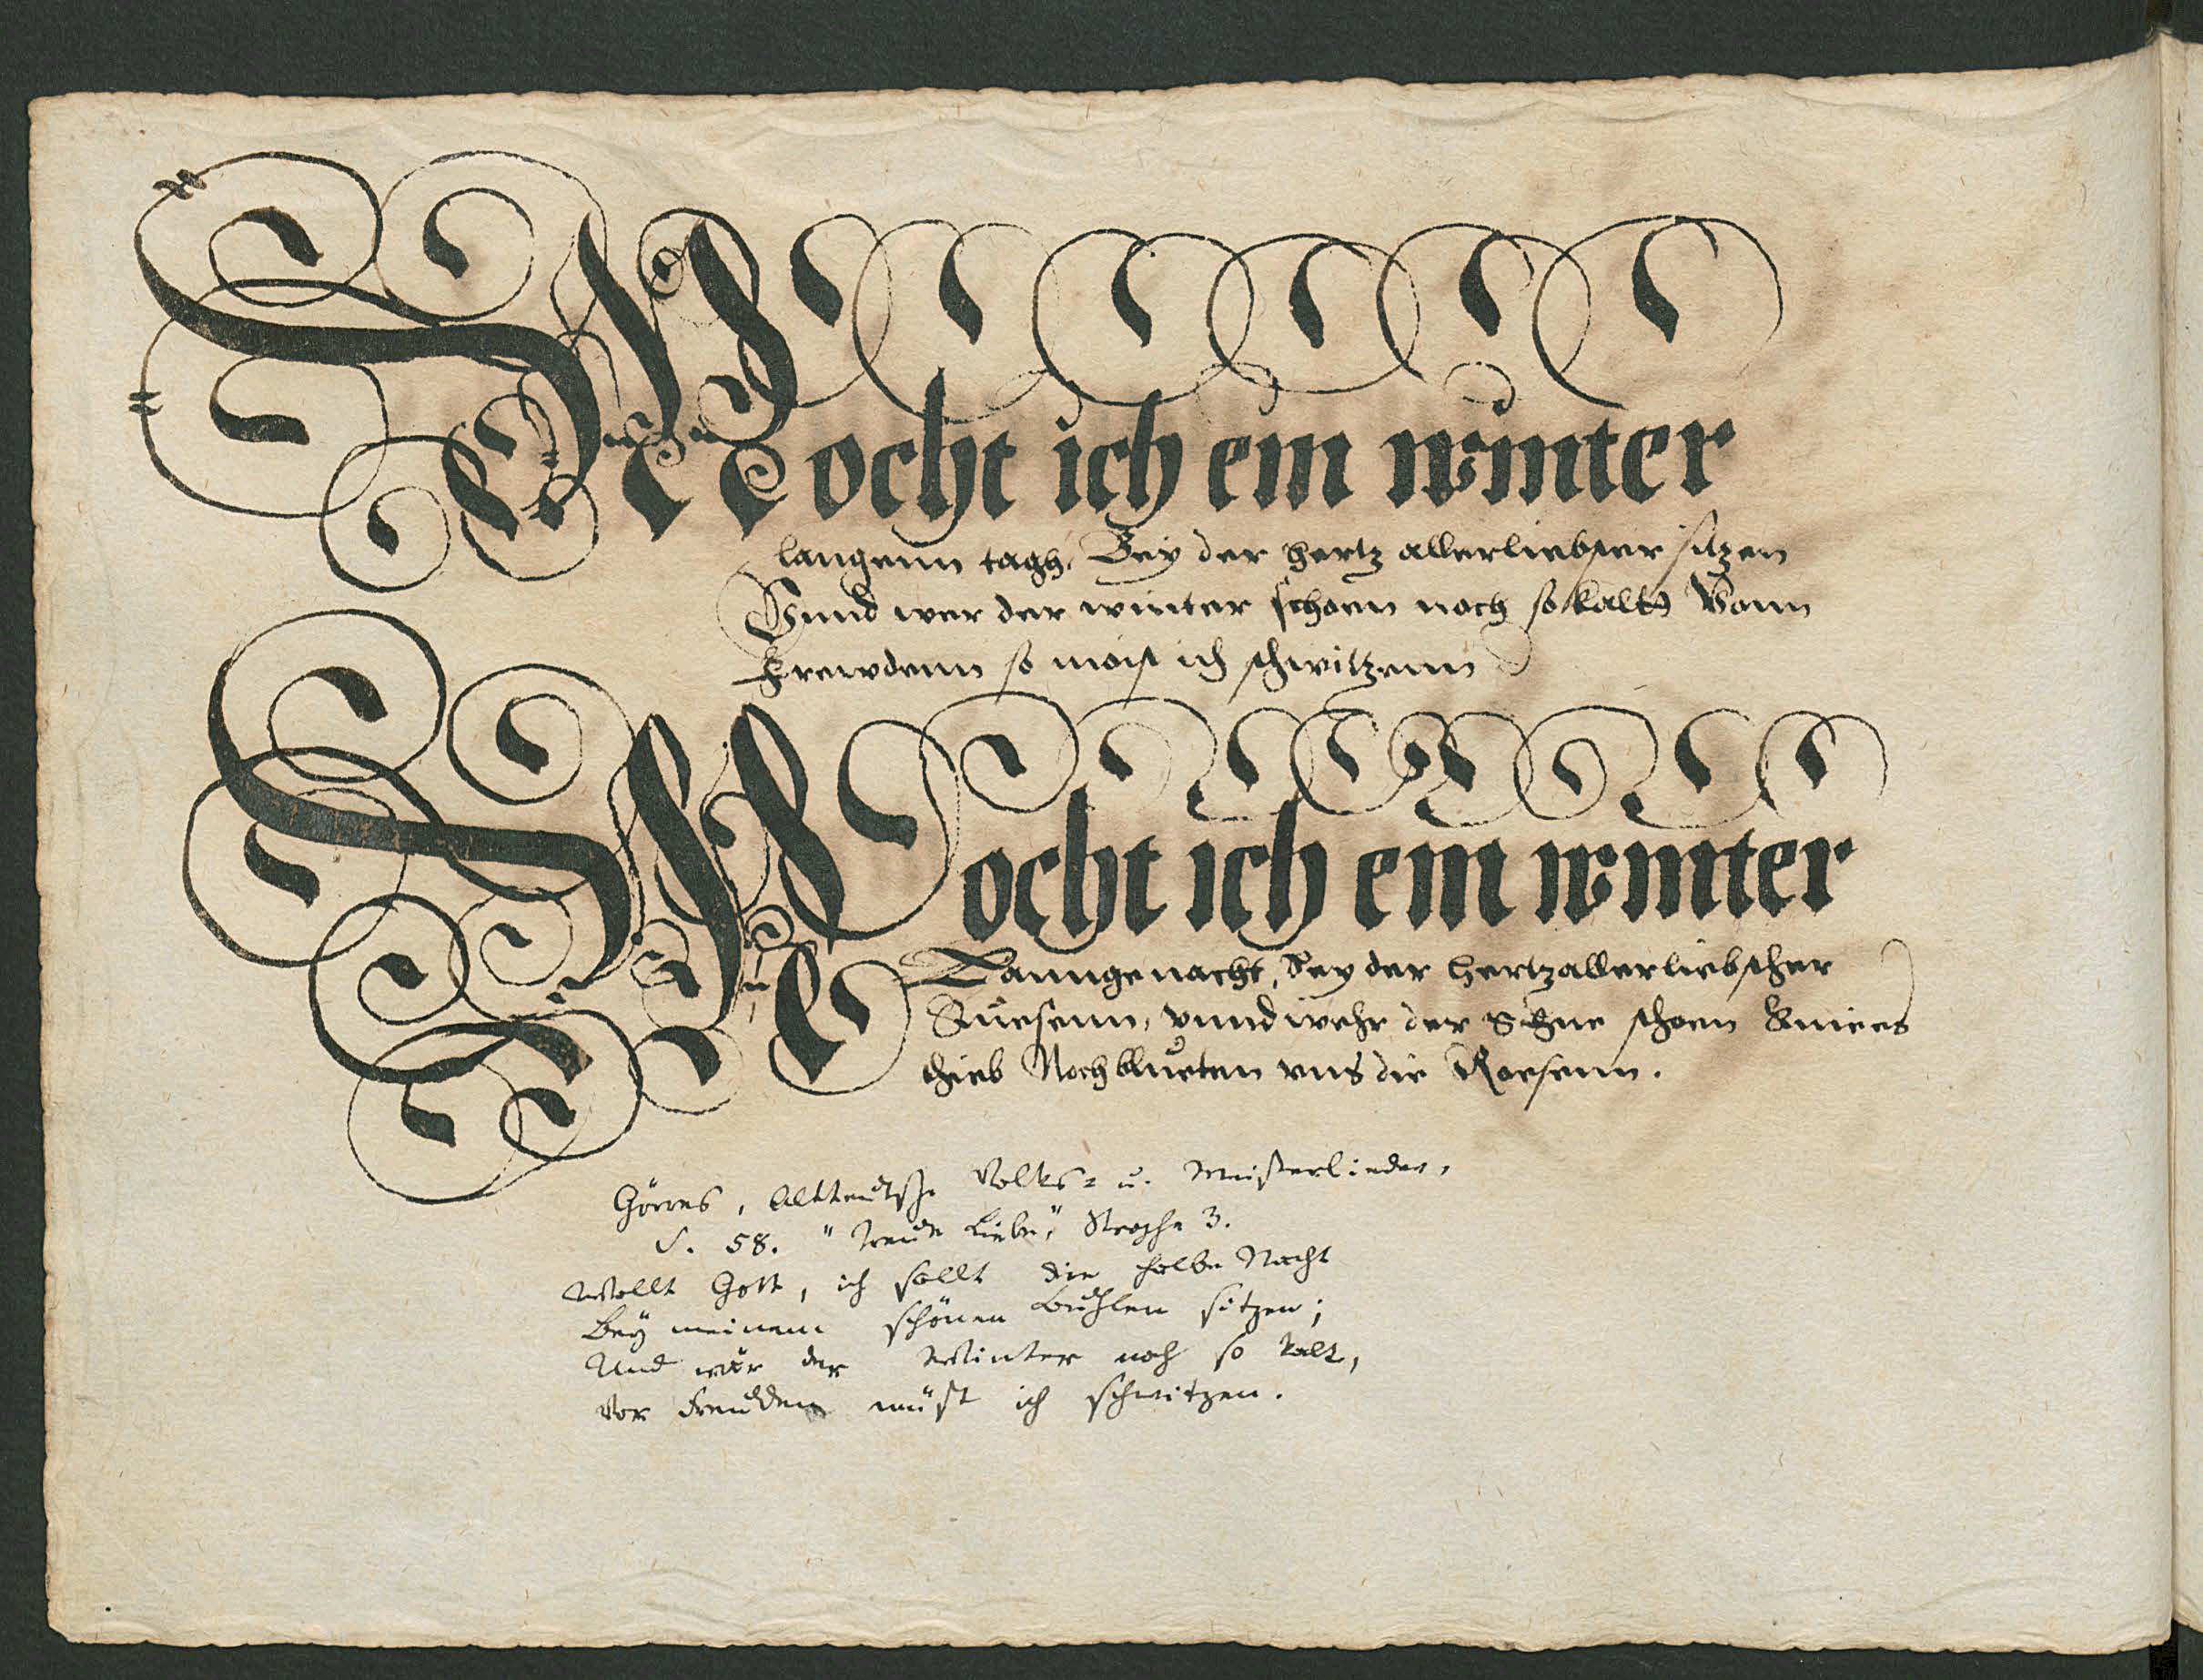 Mocht ich ein winter
langenn tagh, Bey der hertz allerliebster sitzen
Vnnd wer der winter schoen noch so kalt Vonn
Frewdenn so moist ich schwitzenn
Mocht ich ein winter
Lannge nacht, Bey der hertzallerliebscher
Kuesenn, vnnd wehr der Schne schoen Kniees
thieb Noch blueten vns die Roesenn.
Görres, Altteutsche Volks- u. Meisterlieder,
S. 58. "Treue Liebe," Strophe 3.
Wollt Gott, ich sollt die halbe Nacht
Bey meinem schönen Buhlen sitzen;
Und wär der Winter noch so kalt,
Vor Freuden müßt ich schwitzen.